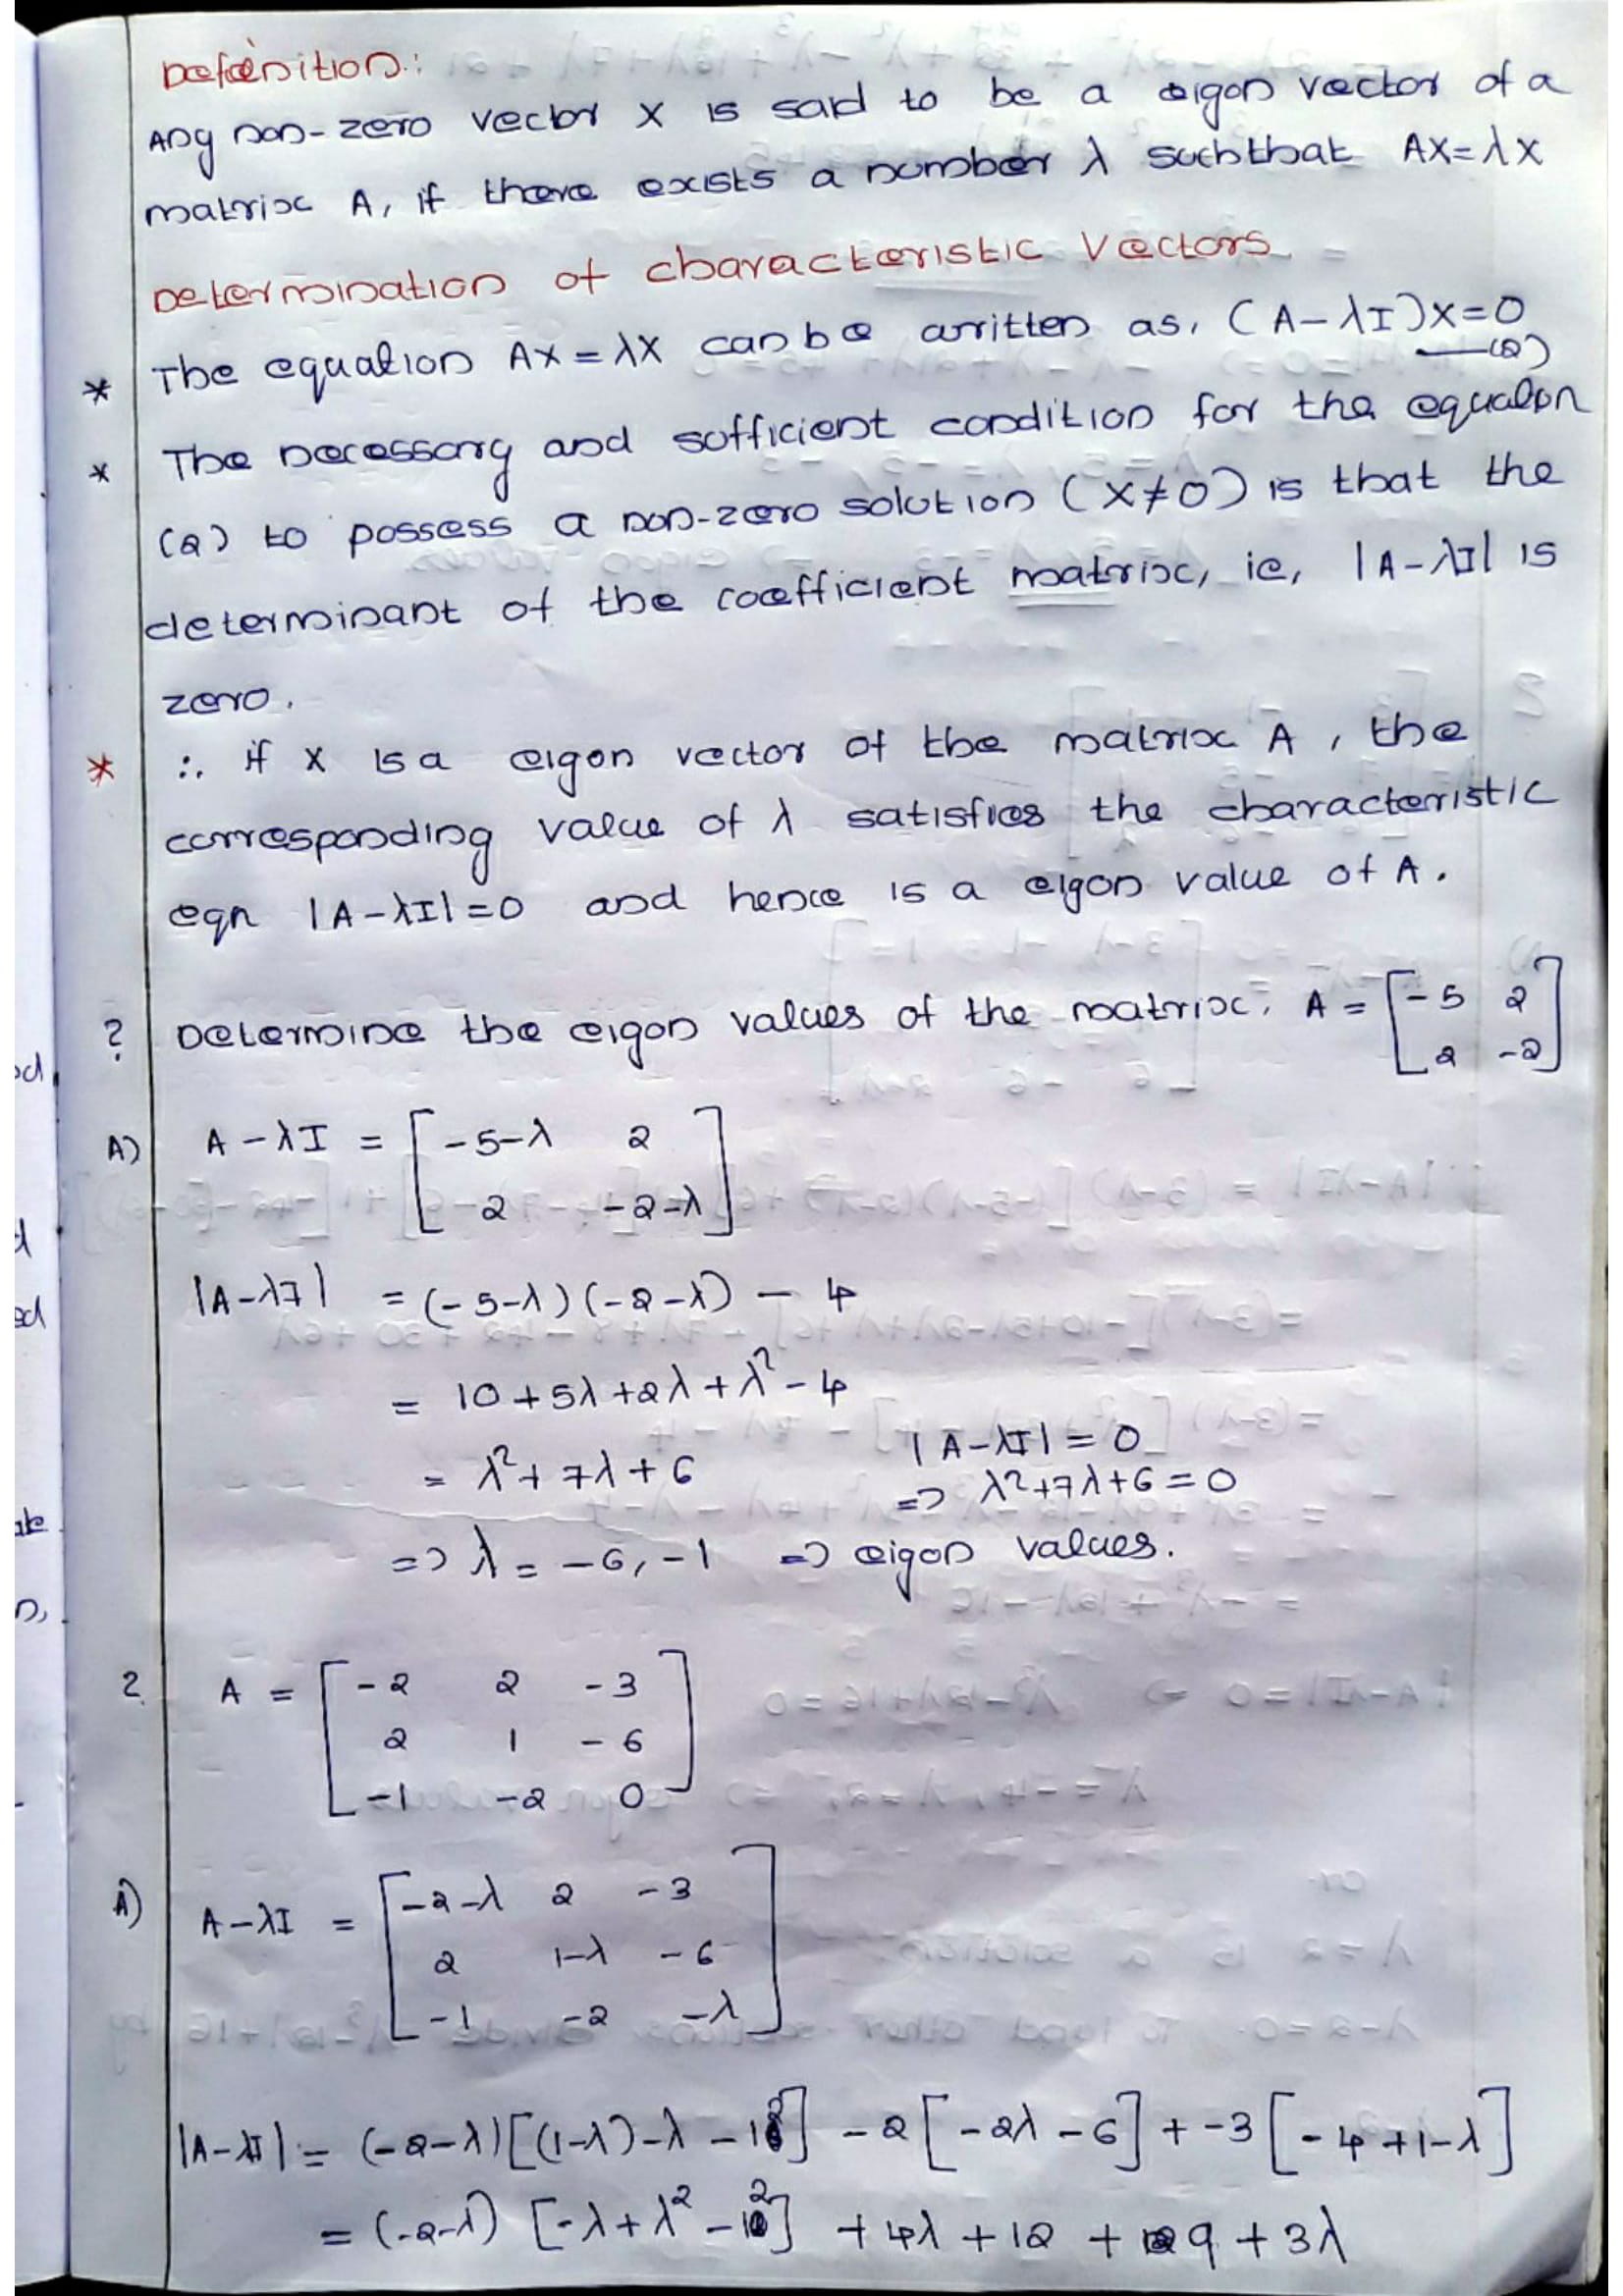 Definition:
Any non-zero vector X is said to be a eigen vector of a
matrix A, if there exists a number λ such that AX=λX
Determination of characteristic Vectors
* The equation AX = λX can be written as, (A-λI)X=0
—(2)
* The necessary and sufficient condition for the equation
(2) to possess a non-zero solution (X≠0) is that the
determinant of the coefficient matrix, ie, |A-λI| is
zero.
* ∴ if X is a eigen vector of the matrix A, the
corresponding value of λ satisfies the characteristic
eqn |A-λI|=0 and hence is a eigen value of A.
? Determine the eigen values of the matrix. A = [-5 2
2 -2]
A) A-λI = [-5-λ 2
2 -2-λ]
|A-λI| = (-5-λ)(-2-λ) - 4
= 10+5λ+2λ+λ²-4
= λ²+7λ+6 |A-λI|=0
=> λ²+7λ+6=0
=> λ = -6, -1 => eigen values.
2. A = [-2 2 -3
2 1 -6
-1 -2 0]
A) A-λI = [-2-λ 2 -3
2 1-λ -6
-1 -2 -λ]
|A-λI| = (-2-λ)[(1-λ)-λ-12] -2[-2λ-6]+-3[-4+1-λ]
= (-2-λ) [-λ+λ²-12] +4λ+12+9+3λ